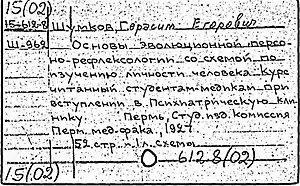 15(02)
15-612-8 Шумков, Герасим Егорович
Ш-962 Основы эволюционной персо-
но-рефлексологии со схемой по
изучению личности человека. Курс
читанный студентам-медикам при
вступлении в Психиатрическую кли-
нику. Пермь, Студ. изд. комиссия
Перм. мед. фака, 1927
52 стр. 1 л. схемы
612.8(02)
15(02)